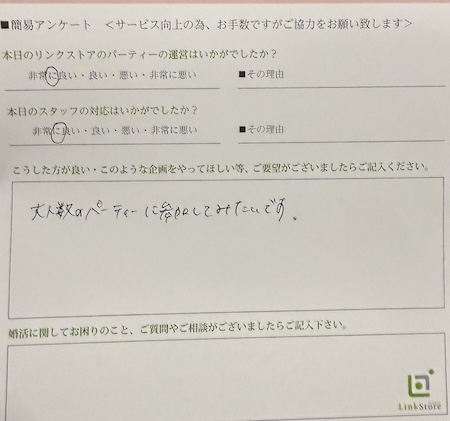 ■簡易アンケート　＜サービス向上の為、お手数ですがご協力をお願い致します＞
本日のリンクストアのパーティーの運営はいかがでしたか？
非常に良い・良い・悪い・非常に悪い　■その理由
本日のスタッフの対応はいかがでしたか？
非常に良い・良い・悪い・非常に悪い　■その理由
こうした方が良い・このような企画をやってほしい等、ご要望がございましたらご記入ください。
大人数のパーティーに参加してみたいです。
婚活に関してお困りのこと、ご質問やご相談がございましたらご記入下さい。
LinkStore